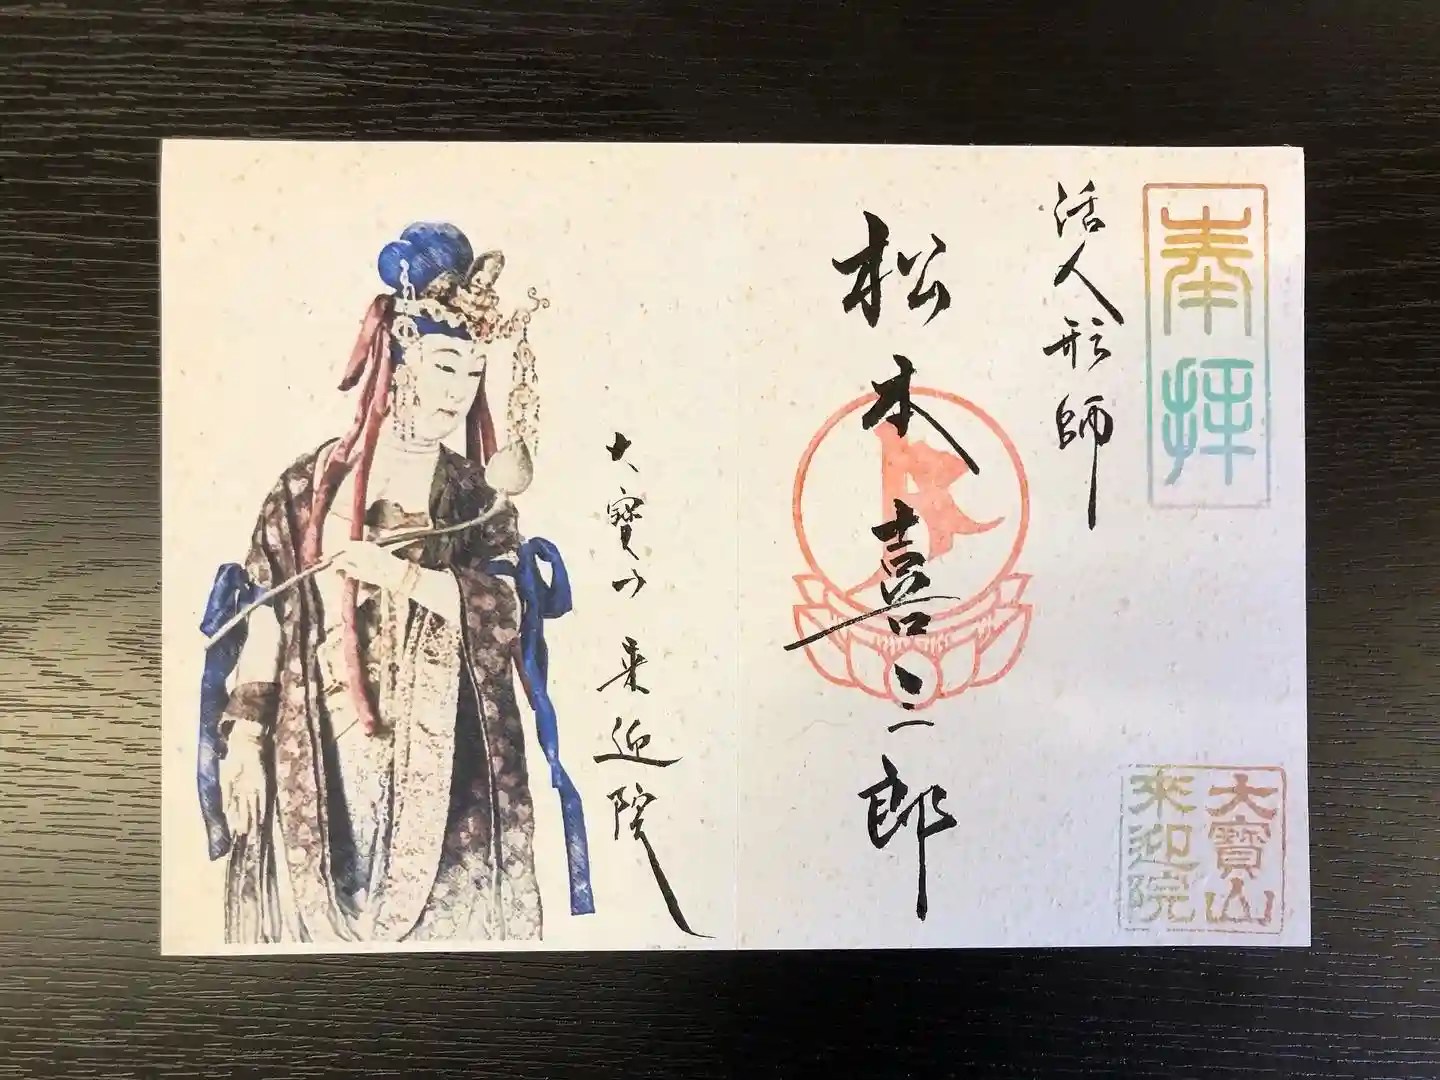 奉拝
活人形師
松本喜三郎
大寶山
来迎院
大寶山 来迎院